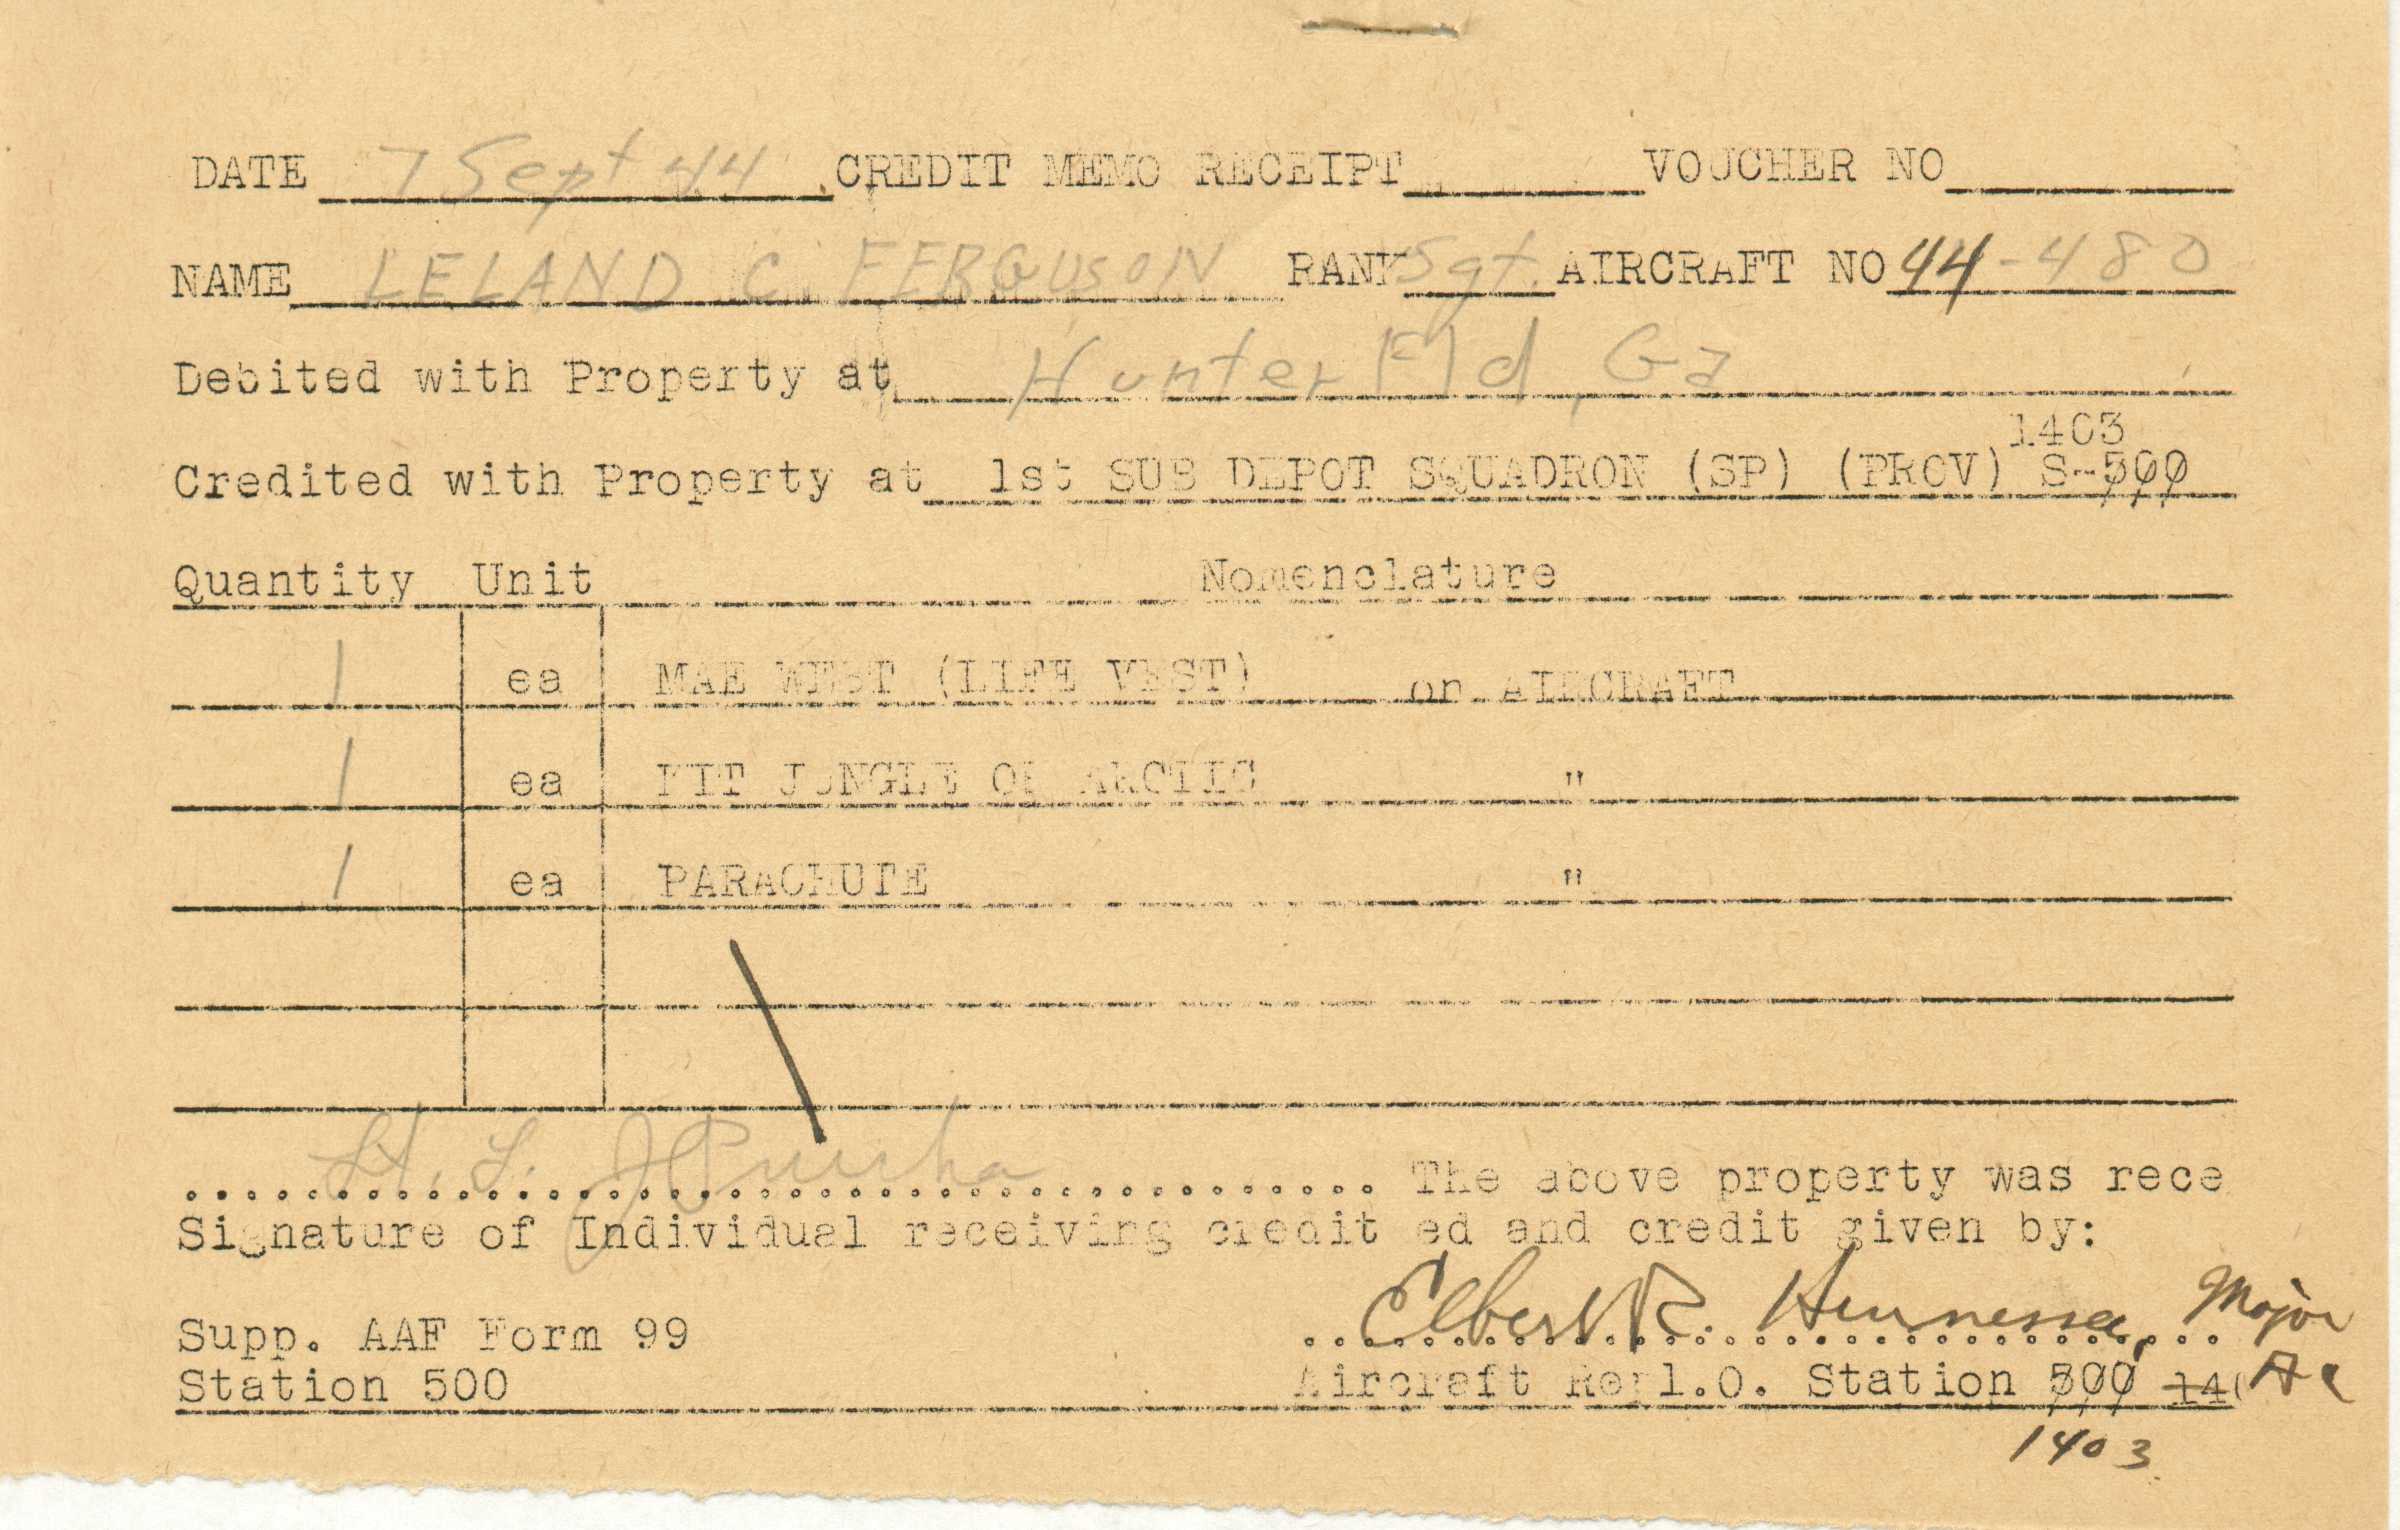 DATE 7 Sept 44 CREDIT MEMO RECEIPT VOUCHER NO
NAME LELAND C. FERGUSON RANK Sgt. AIRCRAFT NO 44-480
Debited with Property at Hunter Fld, Ga
1403
Credited with Property at 1st SUB DEPOT SQUADRON (SP) (PROV) S-500
Quantity Unit Nomenclature
1 ea MAE WEST (LIFE VEST) on AIRCRAFT
1 ea KIT JUNGLE OR ARCTIC "
1 ea PARACHUTE "
H. L.
The above property was rece
Signature of Individual receiving credit ed and credit given by:
Elbert R. Hennessa, Major
Supp. AAF Form 99
Station 500 Aircraft Repl.O. Station 500 14( Ac
1403